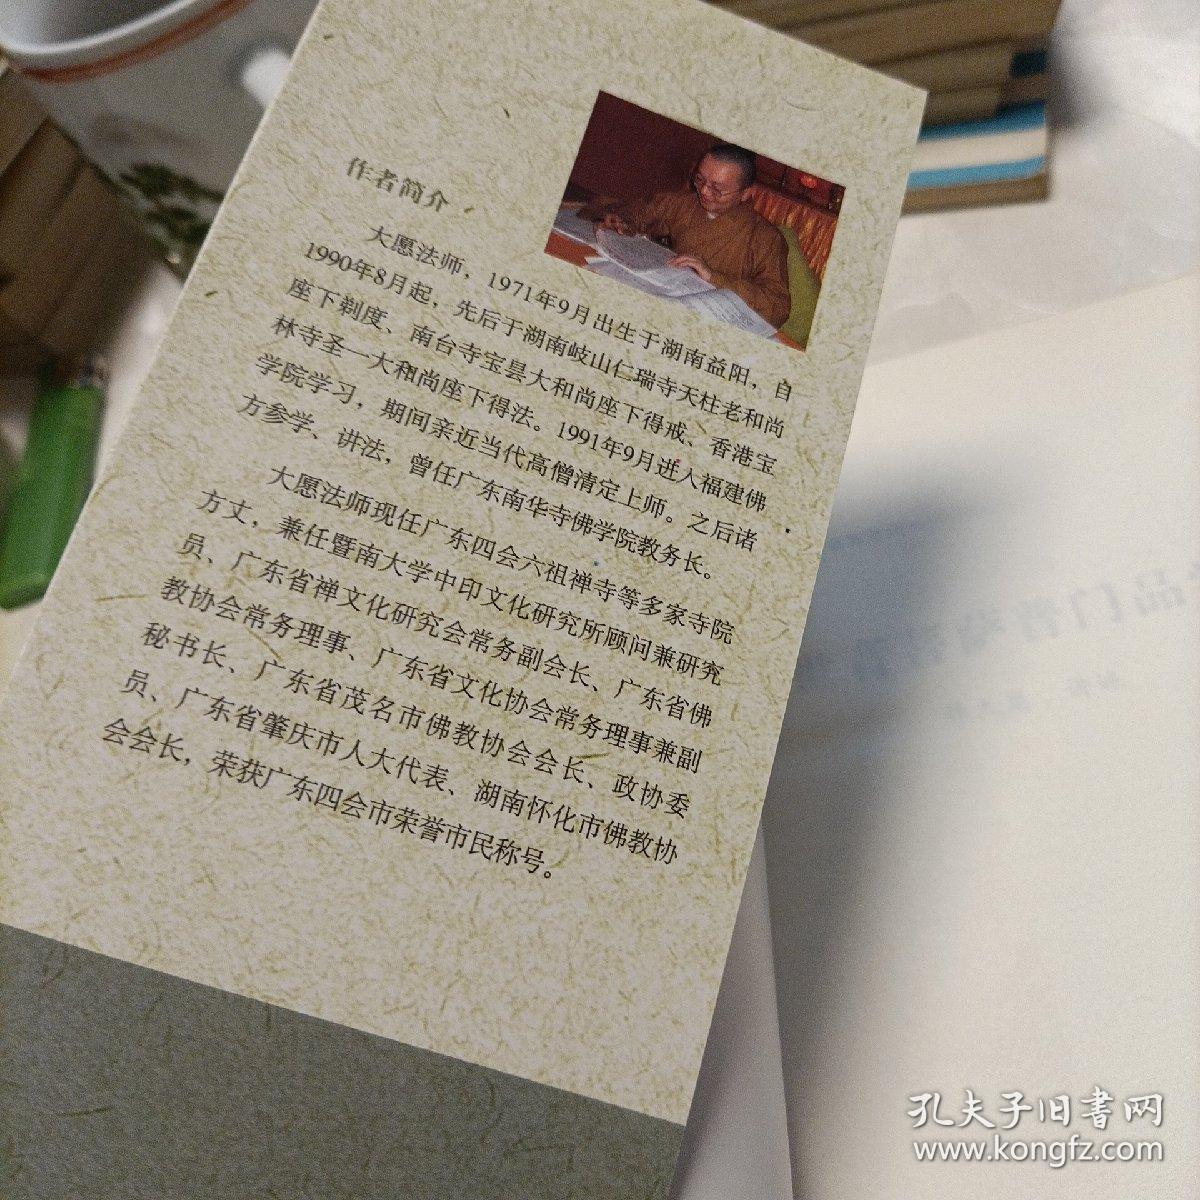 作者简介
大愿法师，1971年9月出生于湖南益阳，自
1990年8月起，先后于湖南岐山仁瑞寺天柱老和尚
座下剃度、南台寺宝昙大和尚座下得戒、香港宝
林寺圣一大和尚座下得法。1991年9月进入福建佛
学院学习，期间亲近当代高僧清定上师。之后诸
方参学、讲法，曾任广东南华寺佛学院教务长。
大愿法师现任广东四会六祖禅寺等多家寺院
方丈，兼任暨南大学中印文化研究所顾问兼研究
员、广东省禅文化研究会常务副会长、广东省佛
教协会常务理事、广东省文化协会常务理事兼副
秘书长、广东省茂名市佛教协会会长、政协委
员、广东省肇庆市人大代表、湖南怀化市佛教协
会会长，荣获广东四会市荣誉市民称号。
孔夫子旧书网
www.kongfz.com